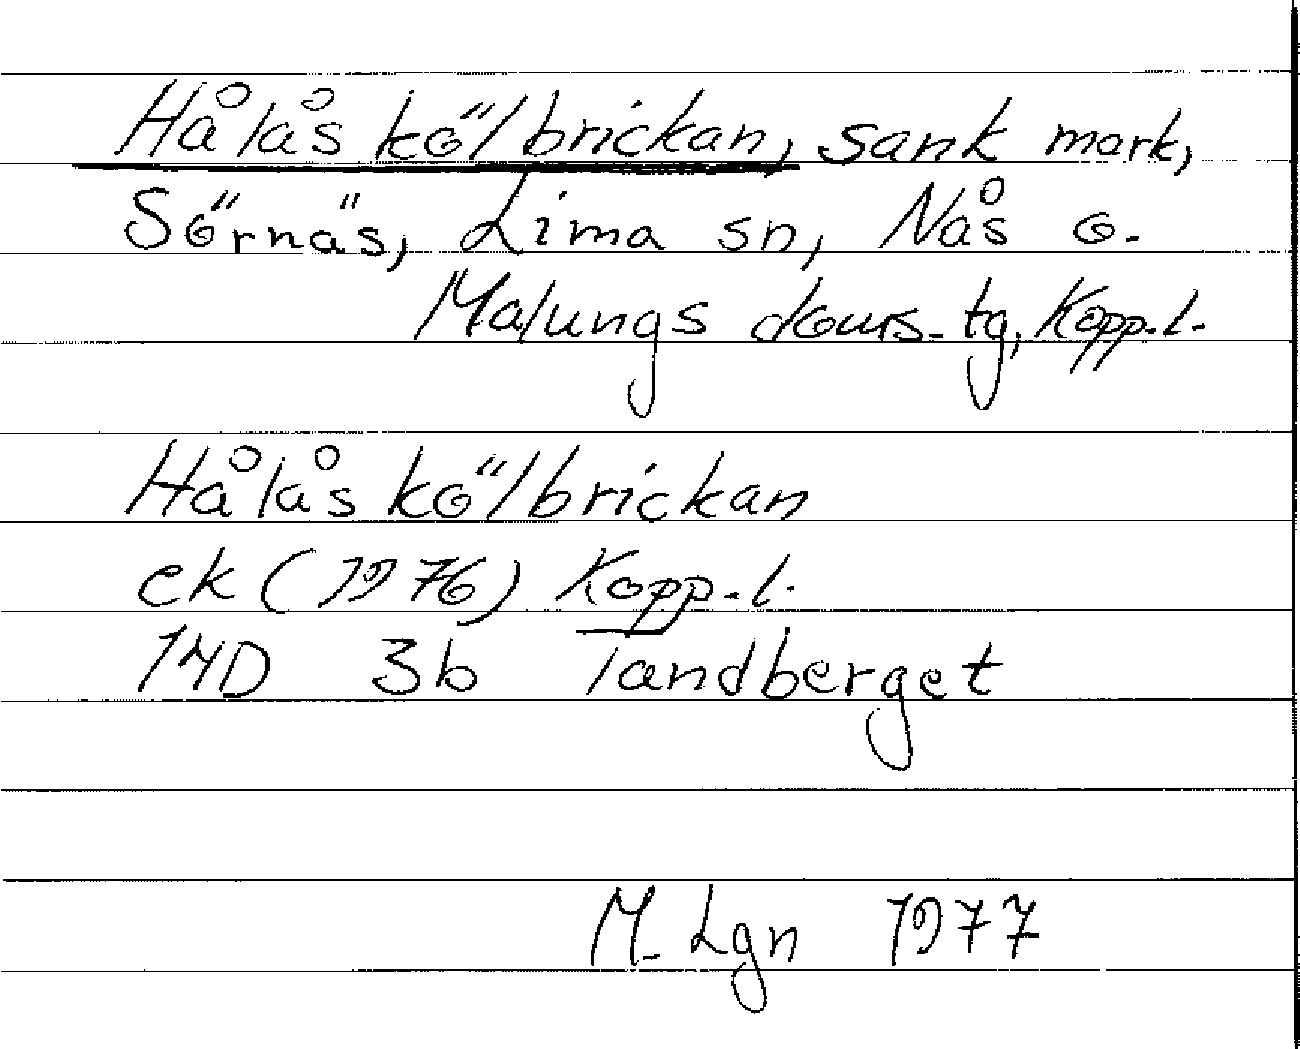 Hålås kölbrickan, sank mark,
Sörnäs, Lima sn, Nås o.
Malungs doms. tg, Kopp. l.
Hålås kölbrickan
ek (1976) Kopp. l.
14D 3b Tandberget
M. Lgn 1977